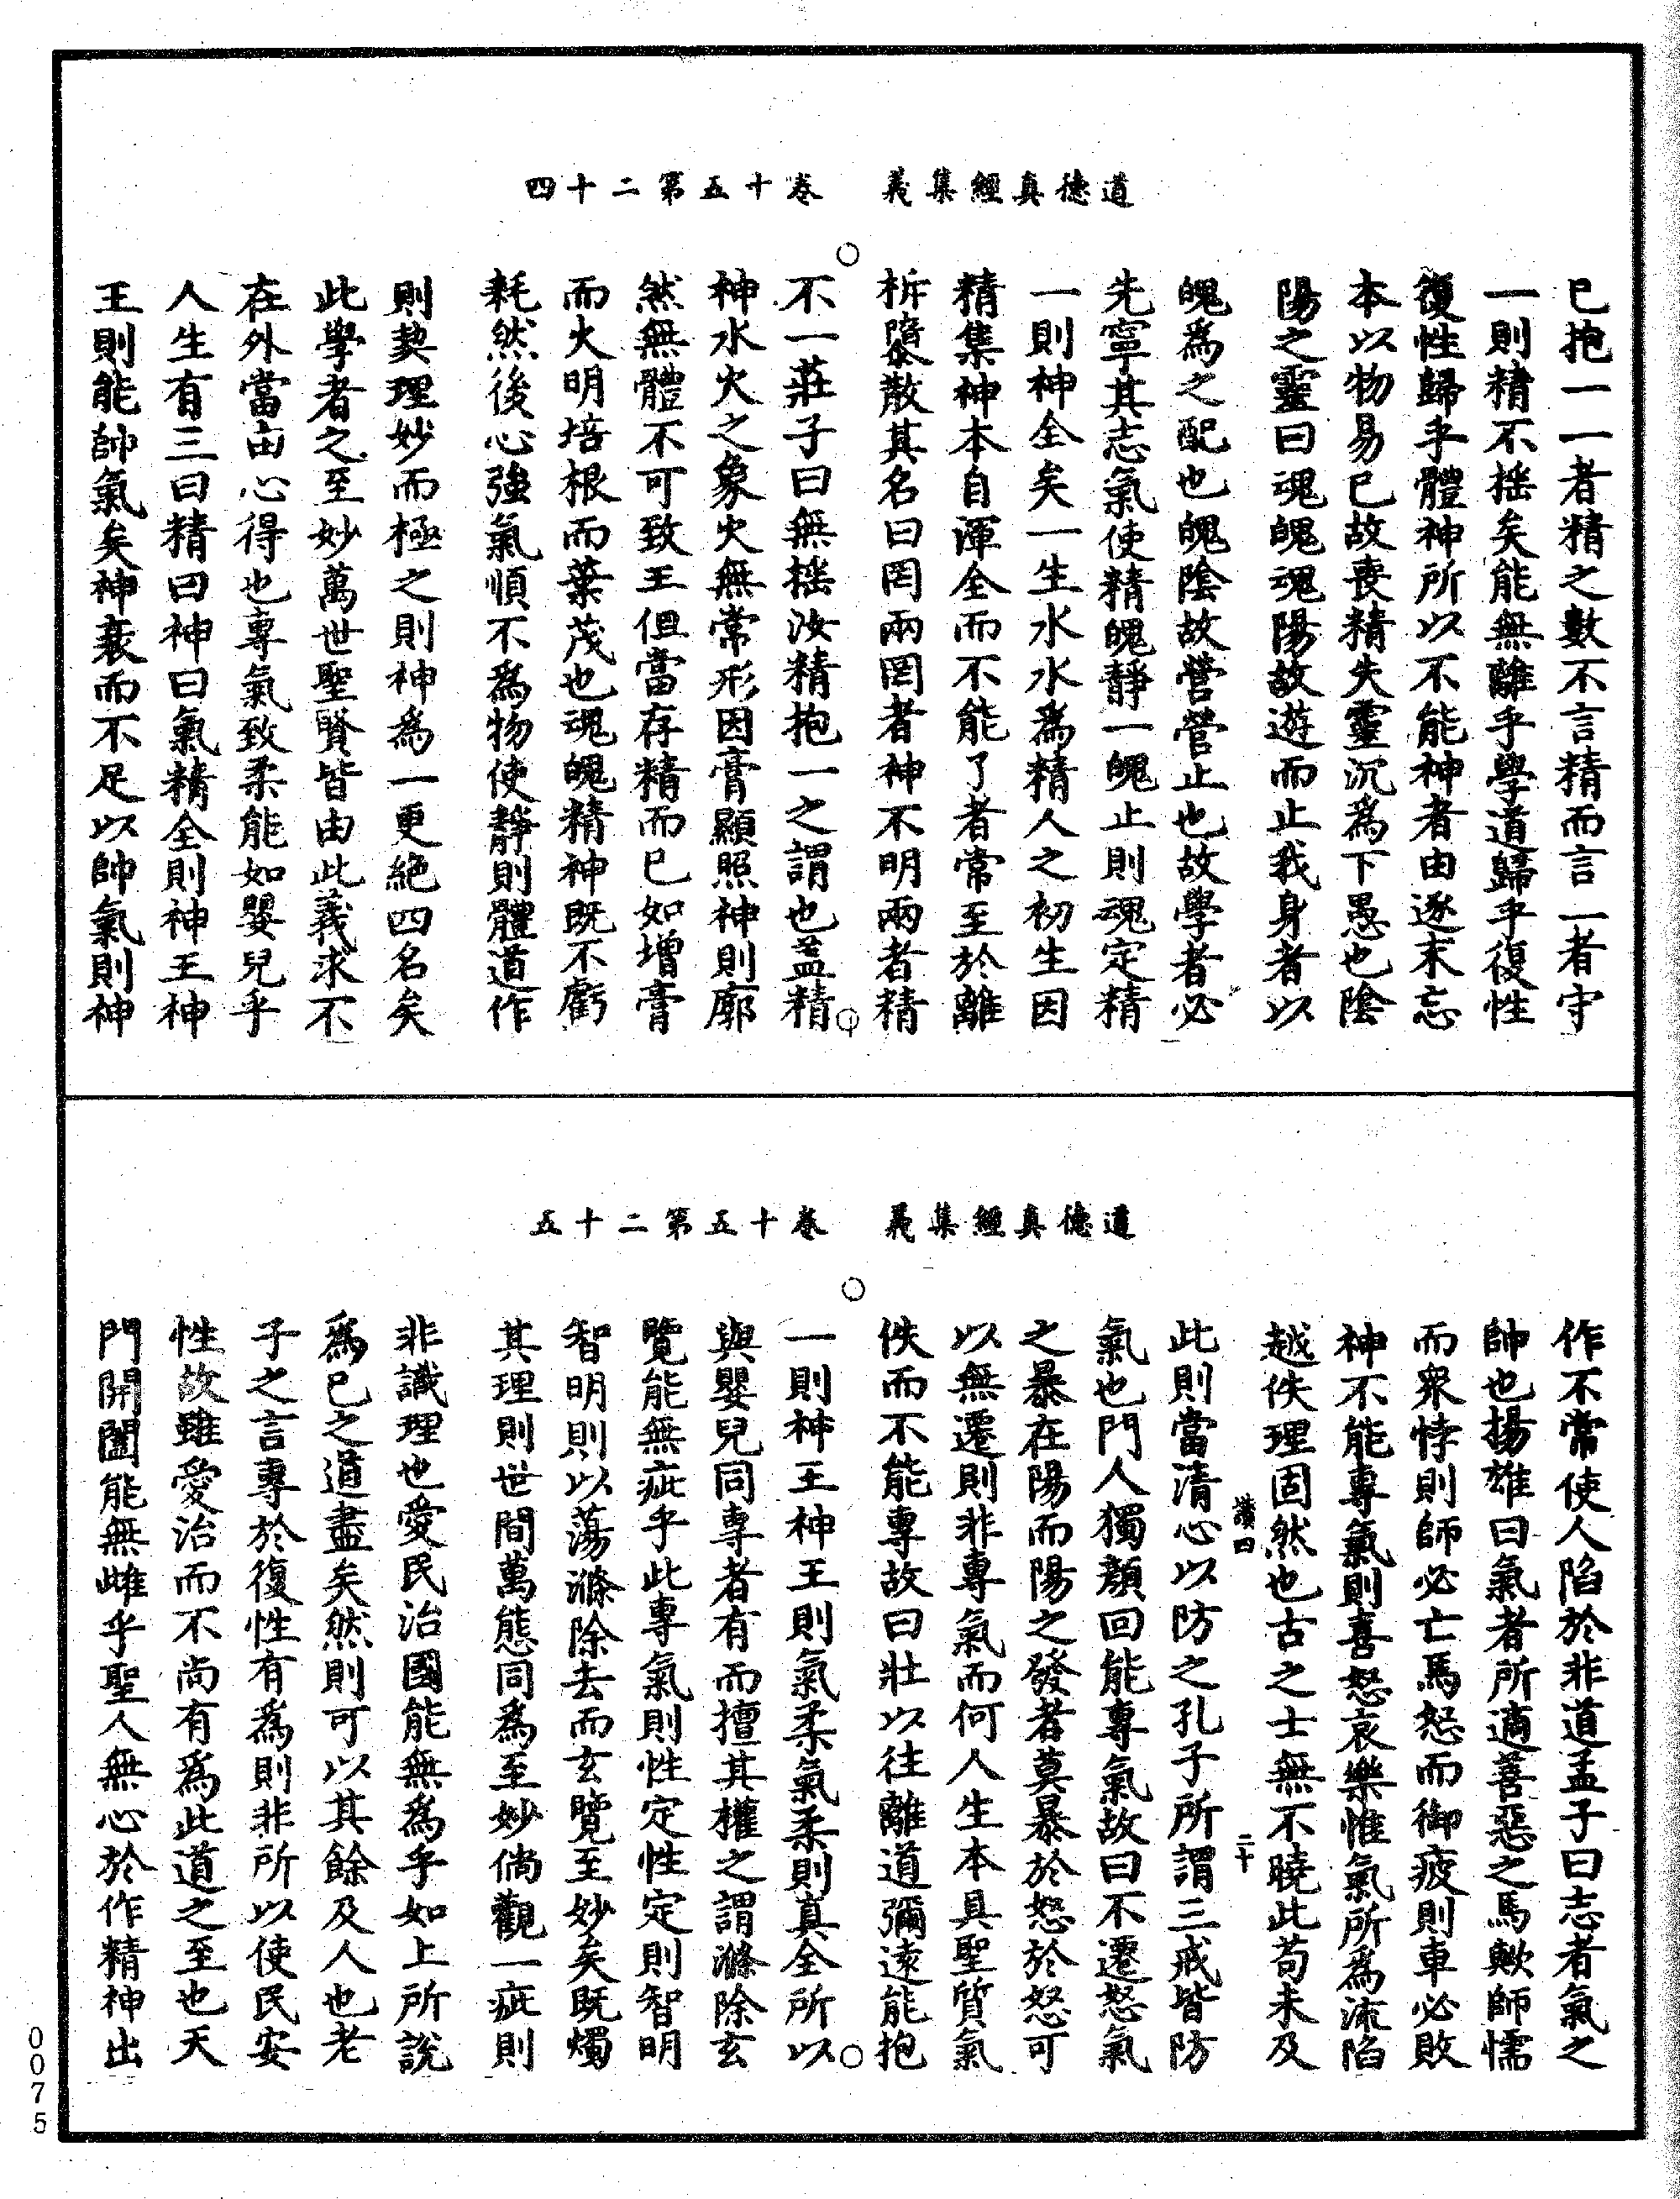 道德真經集義　卷十五第二十四
已抱一一者精之數不言精而言一者守
一則精不搖矣能無離乎學道歸乎復性
復性歸乎體神所以不能神者由逐末忘
本以物易已故喪精失靈沉為下愚也陰
陽之靈曰魂魄魂陽故遊而止我身者以
魄為之配也魄陰故營營止也故學者必
先寧其志氣使精魄靜一魄止則魂定精
一則神全矣一生水水為精人之初生因
精集神本自渾全而不能了者常至於離
析隳散其名曰罔兩罔者神不明兩者精
不一莊子曰無搖汝精抱一之謂也盖精
神水火之象火無常形因膏顯照神則廓
然無體不可致王但當存精而已如增膏
而火明培根而葉茂也魂魄精神既不虧
耗然後心強氣順不為物使靜則體道作
則契理妙而極之則神為一更絕四名矣
此學者之至妙萬世聖賢皆由此義求不
在外當由心得也專氣致柔能如嬰兒乎
人生有三曰精曰神曰氣精全則神王神
王則能帥氣矣神衰而不足以帥氣則神
道德真經集義　卷十五第二十五
作不常使人陷於非道孟子曰志者氣之
帥也揚雄曰氣者所適善惡之馬歟師懦
而眾悖則師必亡馬怒而御疲則車必敗
神不能專氣則喜怒哀樂惟氣所為流陷
越佚理固然也古之士無不曉此苟未及
讓四　二十
此則當清心以防之孔子所謂三戒皆防
氣也門人獨顏回能專氣故曰不遷怒氣
之暴在陽而陽之發者莫暴於怒於怒可
以無遷則非專氣而何人生本具聖質氣
佚而不能專故曰壯以往離道彌遠能抱
一則神王神王則氣柔氣柔則真全所以
與嬰兒同專者有而擅其權之謂滌除玄
覽能無疵乎此專氣則性定性定則智明
智明則以蕩滌除去而玄覽至妙矣既燭
其理則世間萬態同為至妙倘觀一疵則
非識理也愛民治國能無為乎如上所說
為已之道盡矣然則可以其餘及人也老
子之言專於復性有為則非所以使民安
性故雖愛治而不尚有為此道之至也天
門開闔能無雌乎聖人無心於作精神出
0075